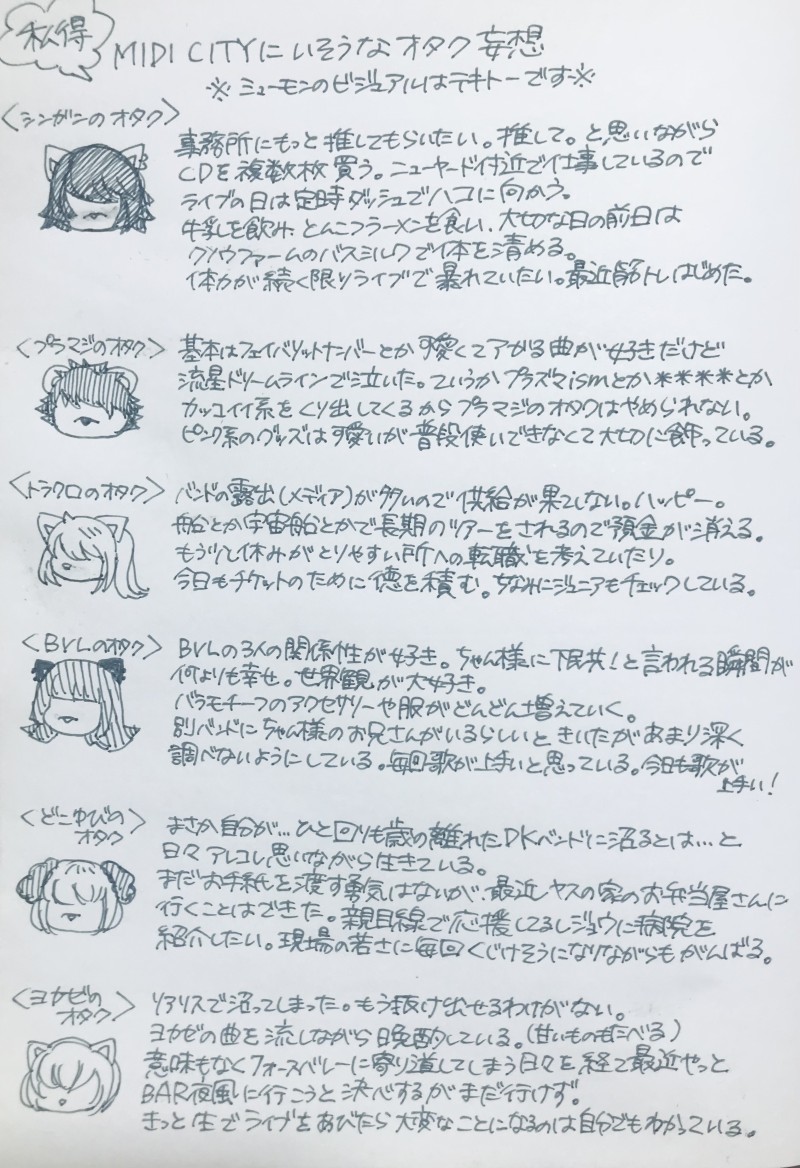 私得
MIDI CITYにいそうなオタク妄想
※ミューモンのビジュアルはテキトーです※
〈シンガンのオタク〉
事務所にもっと推してもらいたい。推して。と思いながら
CDを複数枚買う。ニューヤード付近で仕事しているので
ライブの日は定時ダッシュでハコに向かう。
牛乳を飲み、とんこつラーメンを食い、大切な日の前日は
クソウファームのバスミルクで体を清める。
体力が続く限りライブで暴れていたい。最近筋トレはじめた。
〈プラマジのオタク〉
基本はフェイバリットナンバーとか可愛くてアガる曲が好きだけど
流星ドリームラインで泣いた。ていうかプラズマismとか****とか
カッコイイ系をくり出してくるからプラマジのオタクはやめられない。
ピンク系のグッズは可愛いが普段使いできなくて大切に飾っている。
〈トラクロのオタク〉
バンドの露出(メディア)が多いので供給が果てしない。ハッピー。
船とか宇宙船とかで長期のツアーをされるので預金が消える。
もう少し休みがとりやすい所への転職を考えていたり。
今日もチケットのために徳を積む。ちなみにジュニアもチェックしている。
〈BVLのオタク〉
BVLの3人の関係性が好き。ちゃん様に下民共!と言われる瞬間が
何よりも幸せ。世界観が大好き。
バラモチーフのアクセサリーや服がどんどん増えていく。
別バンドにちゃん様のお兄さんがいるらしいときいたがあまり深く
調べないようにしている。毎回歌が上手いと思っている。今日も歌が
上手い!
〈どこゆびの
オタク〉
まさか自分が…ひと回りも歳の離れたDKバンドに沼るとは…と
日々アレコレ思いながら生きている。
まだお手紙を渡す勇気はないが、最近ヤスの家のお弁当屋さんに
行くことはできた。親目線で応援してるしジョウに病院を
紹介したい。現場の若さに毎回くじけそうになりながらもがんばる。
〈ヨカゼの
オタク〉
リアリスで沼ってしまった。もう抜け出せるわけがない。
ヨカゼの曲を流しながら晩酌している。(甘いものもたべる)
意味もなくフォースベレーに寄り道してしまう日々を経て最近やっと
BAR夜風に行こうと決心するがまだ行けず。
きっと生でライブをあびたら大変なことになるのは自分でもわかっている。